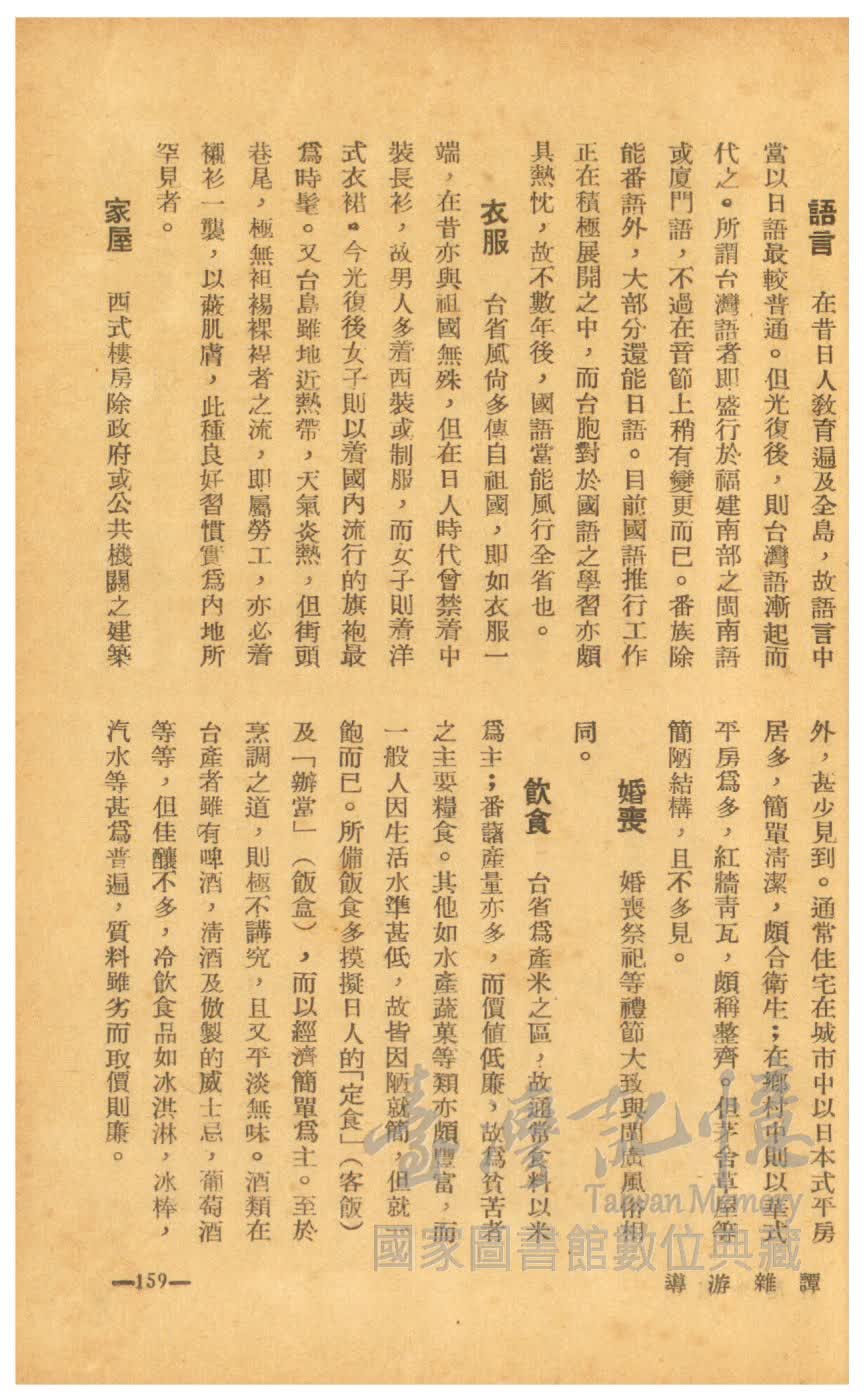 語言　在昔日人教育遍及全島，故語言中
當以日語最較普通。但光復後，則台灣語漸起而
代之。所謂台灣語者即盛行於福建南部之閩南語
或廈門語，不過在音節上稍有變更而已。番族除
能番語外，大部分還能日語。目前國語推行工作
正在積極展開之中，而台胞對於國語之學習亦頗
具熱忱，故不數年後，國語當能風行全省也。
衣服　台省風尙多傳自祖國，即如衣服一
端，在昔亦與祖國無殊，但在日人時代曾禁着中
裝長衫，故男人多着西裝或制服，而女子則着洋
式衣裙。今光復後女子則以着國內流行的旗袍最
爲時髦。又台島雖地近熱帶，天氣炎熱，但街頭
巷尾，極無袒裼裸裎者之流，即屬勞工，亦必着
襯衫一襲，以蔽肌膚，此種良好習慣實爲內地所
罕見者。
家屋　西式樓房除政府或公共機關之建築
外，甚少見到。通常住宅在城市中以日本式平房
居多，簡單清潔，頗合衛生；在鄉村中則以華式
平房爲多，紅牆青瓦，頗稱整齊。但茅舍草屋等
簡陋結構，且不多見。
婚喪　婚喪祭祀等禮節大致與閩廣風俗相
同。
飲食　台省爲產米之區，故通常食料以米
爲主；番藷產量亦多，而價値低廉，故爲貧苦者
之主要糧食。其他如水產蔬菓等類亦頗豐富，而
一般人因生活水準甚低，故皆因陋就簡，但就一
飽而已。所備飯食多摸擬日人的「定食」（客飯）
及「辦當」（飯盒），而以經濟簡單爲主。至於
烹調之道，則極不講究，且又平淡無味。酒類在
台產者雖有啤酒，清酒及倣製的威士忌，葡萄酒
等等，但佳釀不多，冷飲食品如冰淇淋，冰棒，
汽水等甚爲普遍，質料雖劣而取價則廉。
譚雜游導
—159—
臺灣記憶
Taiwan Memory
國家圖書館數位典藏